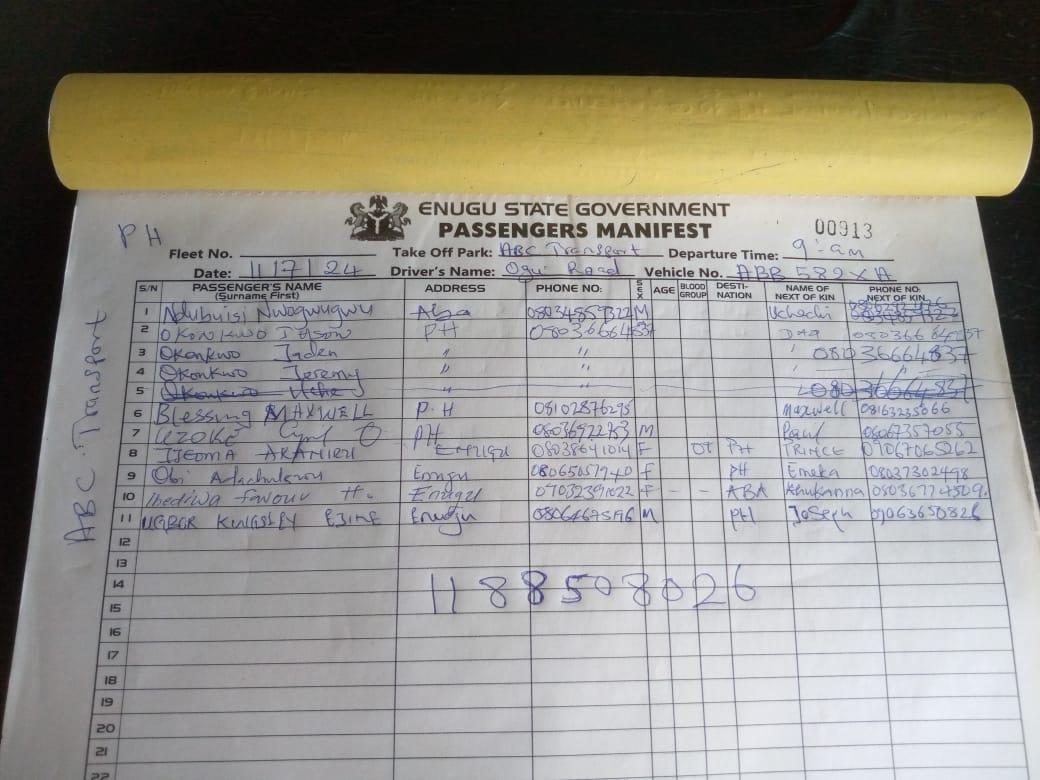 ENUGU STATE GOVERNMENT
PASSENGERS MANIFEST
00913
PH
Fleet No. Take Off Park: ABC Transport Departure Time: 9:am
Date: 11/7/24 Driver's Name: Ogui Road Vehicle No. ABB 582 XA
S/N PASSENGER'S NAME (Surname First) ADDRESS PHONE NO: SEX AGE BLOOD GROUP DESTI-NATION NAME OF NEXT OF KIN PHONE NO: NEXT OF KIN
1 Ndubuisi Nwogwugwu Aba 08034859322 M Uchechi
2 OKONKWO Jason PH 08036664837
3 Okonkwo Jaden " " 08036664837
4 Okonkwo Jeremy " "
5 Okonkwo " " 08036664837
6 Blessing MAXWELL P.H 08102876295 Maxwell 08163235066
7 UZOKE Cyril O PH 08036922753 M Paul 08067357055
8 IJEOMA Enugu 08038641014 F O+ PH PRINCE 07067065262
9 Obi Enugu 08065057940 F PH Emeka 08037302498
10 Ihediwa favour H. Enugu 07032391622 F - - ABA 08036774509.
11 KINGSLEY EJIKE Enugu 08064675196 M PH Joseph 09063650826
12
13
14
1188508026
15
16
17
18
19
20
21
22
ABC Transport